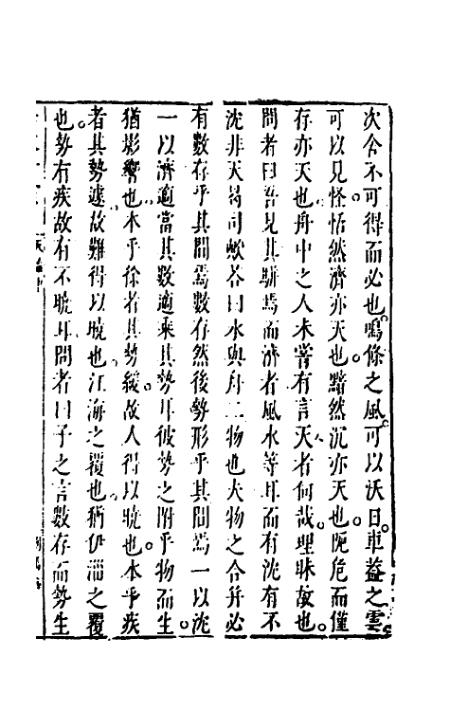 次舍不可得而必也鳴條之風可以沃日車蓋之雲
可以見怪恬然濟亦天也黯然沉亦天也阨危而僅
存亦天也舟中之人未嘗有言天者何哉理昧故也
問者曰吾見其騈焉而濟者風水等耳而有沈有不
沈非天曷司歟荅曰水與舟二物也夫物之合并必
有數存乎其間焉數存然後勢形乎其間焉一以沈
一以濟適當其數適乘其勢耳彼勢之附乎物而生
猶影響也本乎徐者其勢緩故人得以曉也本乎疾
者其勢遽故難得以曉也江海之覆也猶伊淄之覆
也勢有疾故有不曉耳問者曰子之言數存而勢生